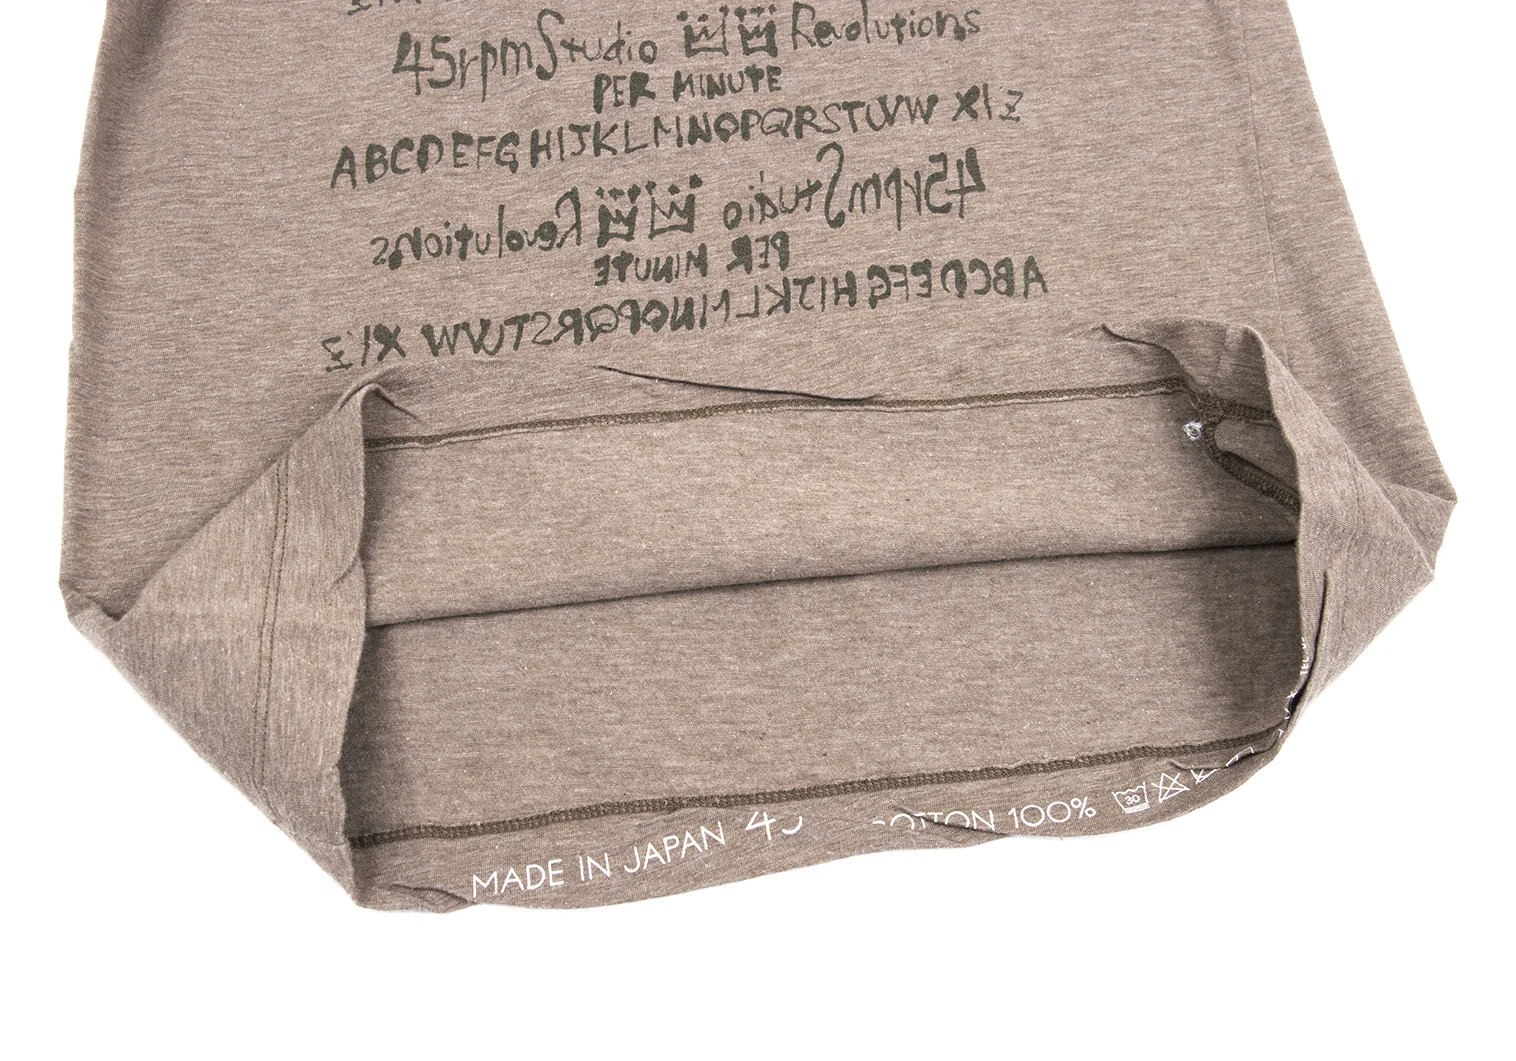 45rpmStudio Revolutions
PER MINUTE
ABCDEFGHIJKLMNOPQRSTUVW XIZ
45rpmStudio Revolutions
PER MINUTE
ABCDEFGHIJKLMNOPQRSTUVW XIZ
MADE IN JAPAN 45 COTTON 100% 30